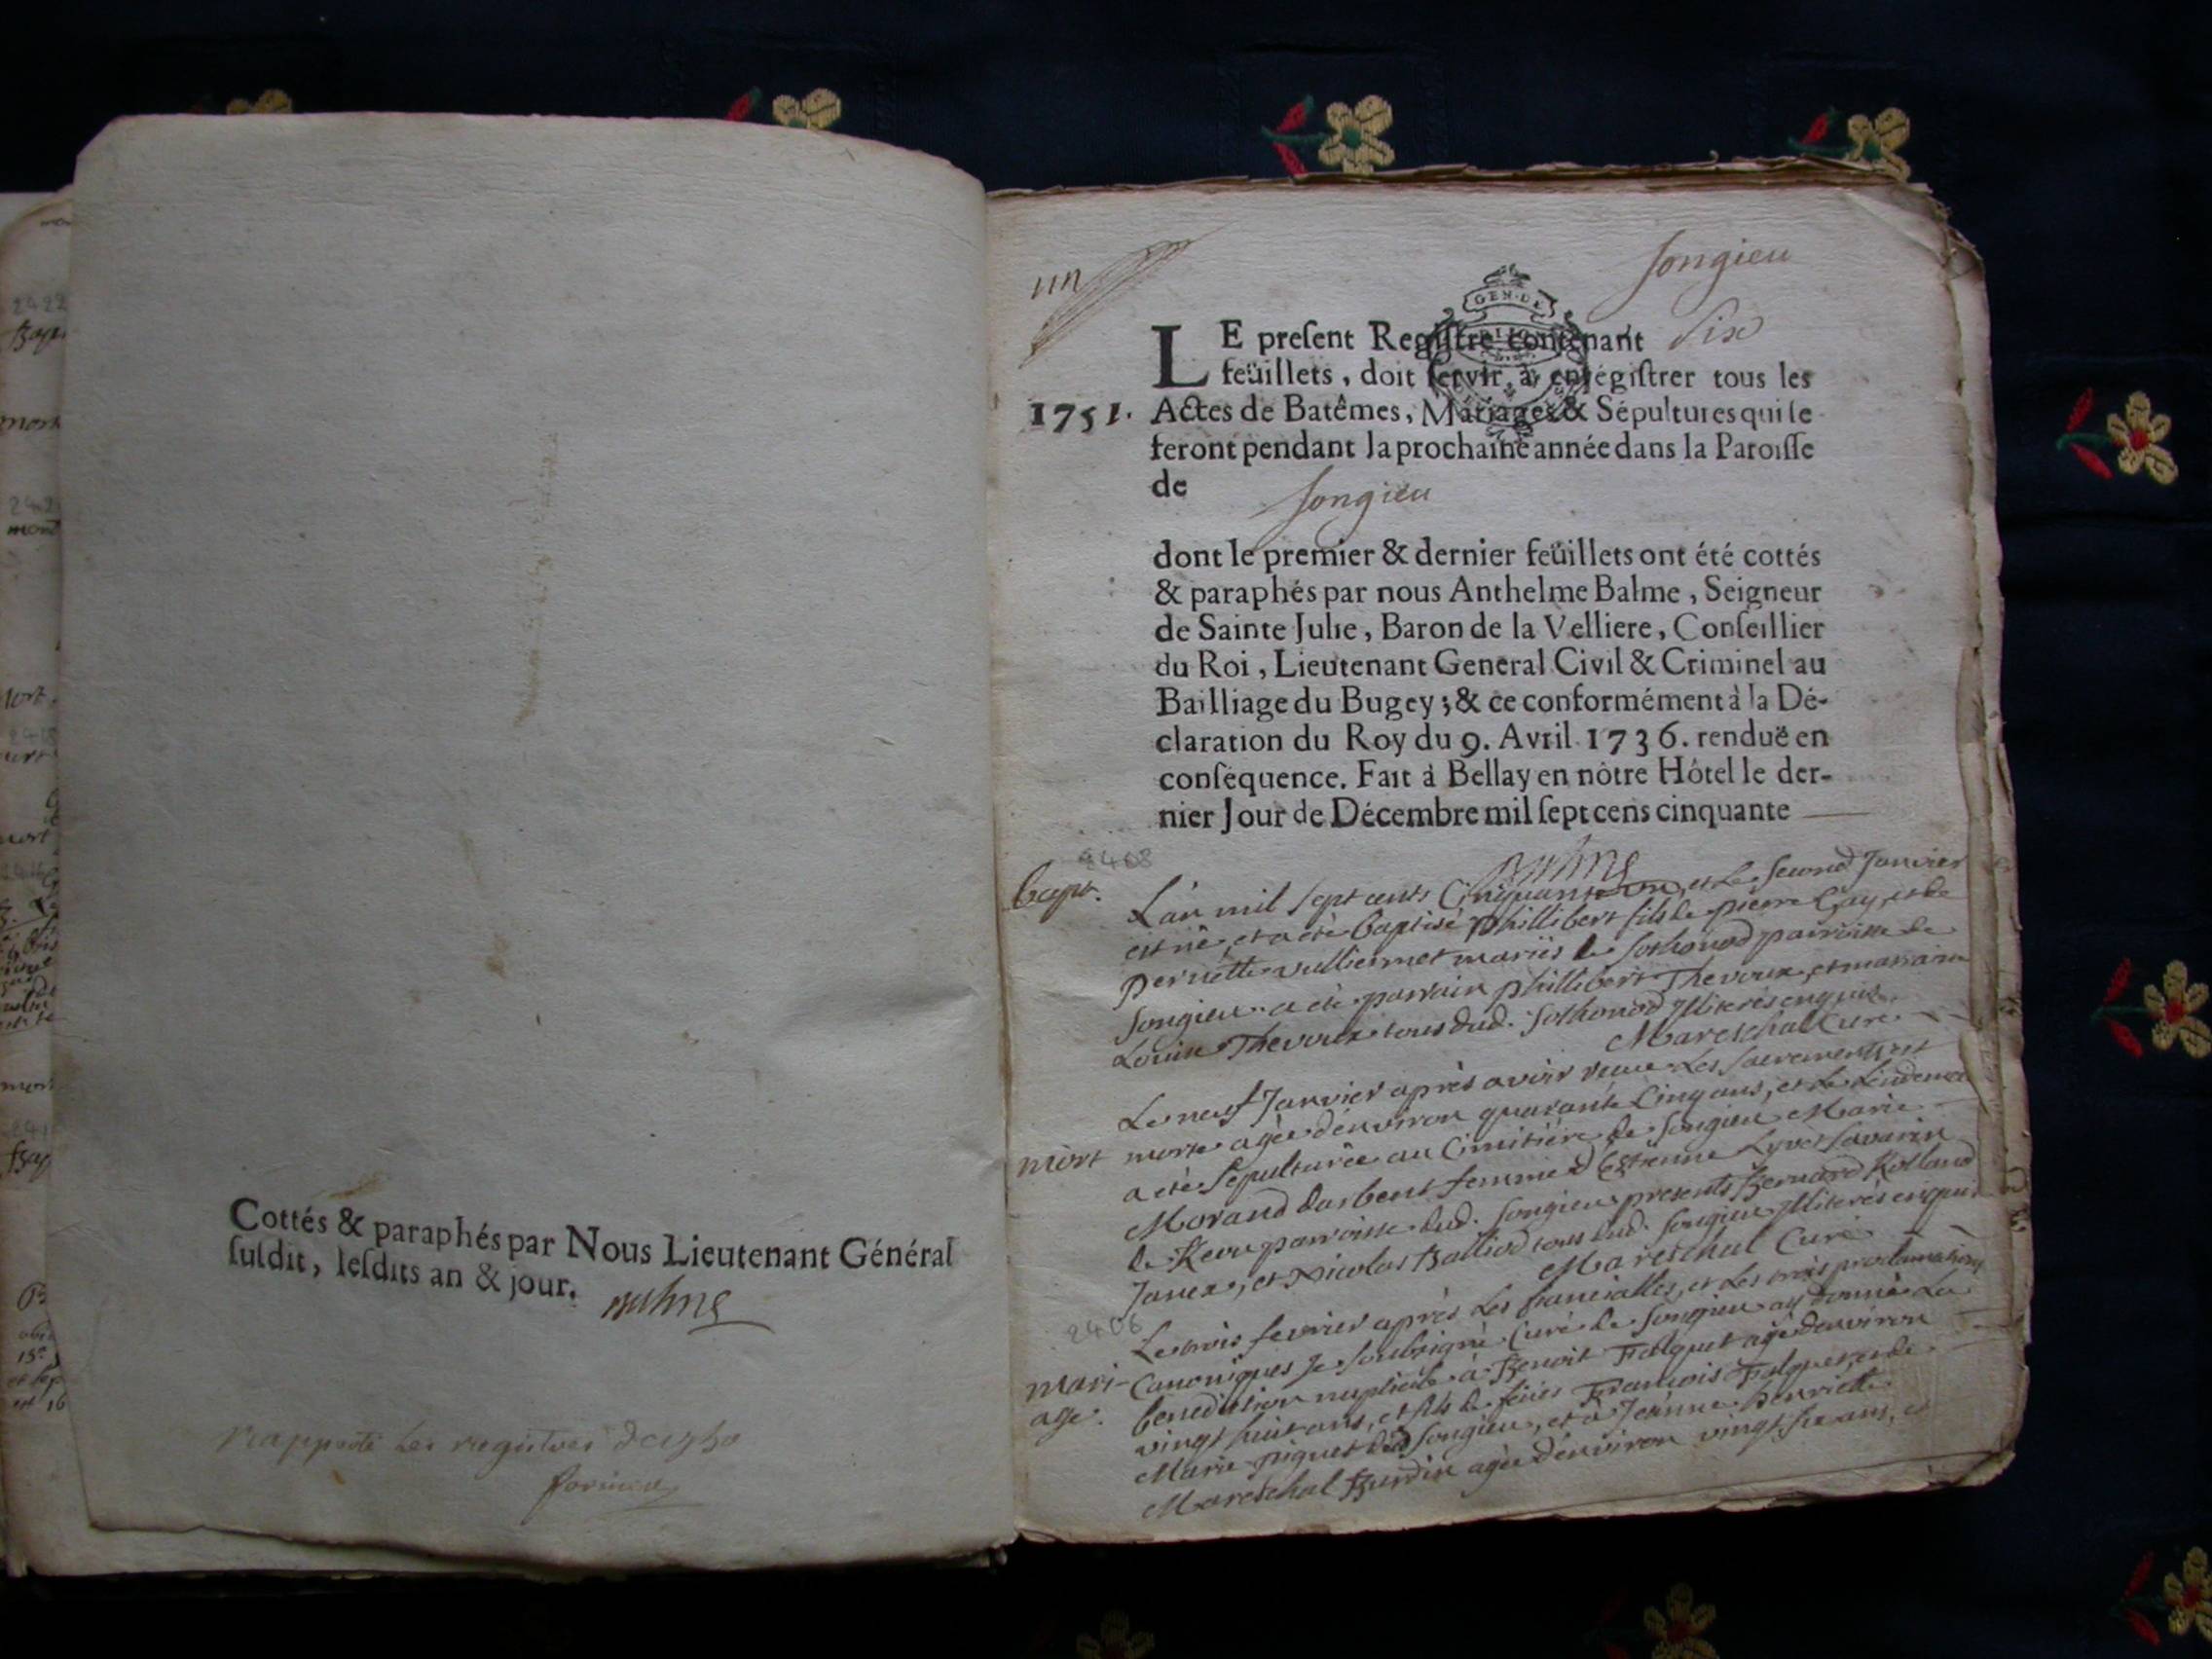 Cottés & paraphés par Nous Lieutenant Général
ſuſdit, leſdits an & jour.
rapporté les registres
Songieu
un
GEN. DE
LE preſent Regiſtre contenant Six
feüillets, doit ſervir, à enrégiſtrer tous les
1751. Actes de Batêmes, Mariages & Sépultures qui ſe
feront pendant la prochaine année dans la Paroiſſe
de Songieu
dont le premier & dernier feüillets ont été cottés
& paraphés par nous Anthelme Balme, Seigneur
de Sainte Julie, Baron de la Velliere, Conſeillier
du Roi, Lieutenant General Civil & Criminel au
Bailliage du Bugey; & ce conformément à la Dé-
claration du Roy du 9. Avril 1736. renduë en
conſéquence. Fait à Bellay en nôtre Hôtel le der-
nier Jour de Décembre mil ſept cens cinquante
Balme
2408
bapt. L'an mil sept cents Cinquante un, et le second Janvier
est né, et a été baptisé phillibert fils de pierre Gay, et de
pernette vulliermet mariés de Sothonod parroisse de
Songieu.. a été parrain phillibert Thevoux, et marraine
Louise Thevoux tous dud. Sothonod Illiterés enquis
Mareschal Curé
Le neuf Janvier après avoir receu les sacrements est
mort morte agée d'environ quarante Cinq ans, et le lendemain
a été sepulturée au Cimitière de Songieu Marie
Morand darbent femme d'Estienne Lyvet Savarin
de parroisse dud. Songieu presents Bernard Rolland
Janex, et Nicolas Balliod tous dud. Songieu Illiterés enquis
Mareschal Curé
2406
Le trois fevrier après les fiancialles, et les trois proclamations
mari- Canoniques Je soubsigné Curé de Songieu ay donné la
age. benediction nuptiale à Benoit Falquet agé d'environ
vingt huit ans, et fils de feus François Falquet, et de
Marie piquet dud Songieu, et à Jeanne henriette
Mareschal Burdin agée d'environ vingt six ans, et